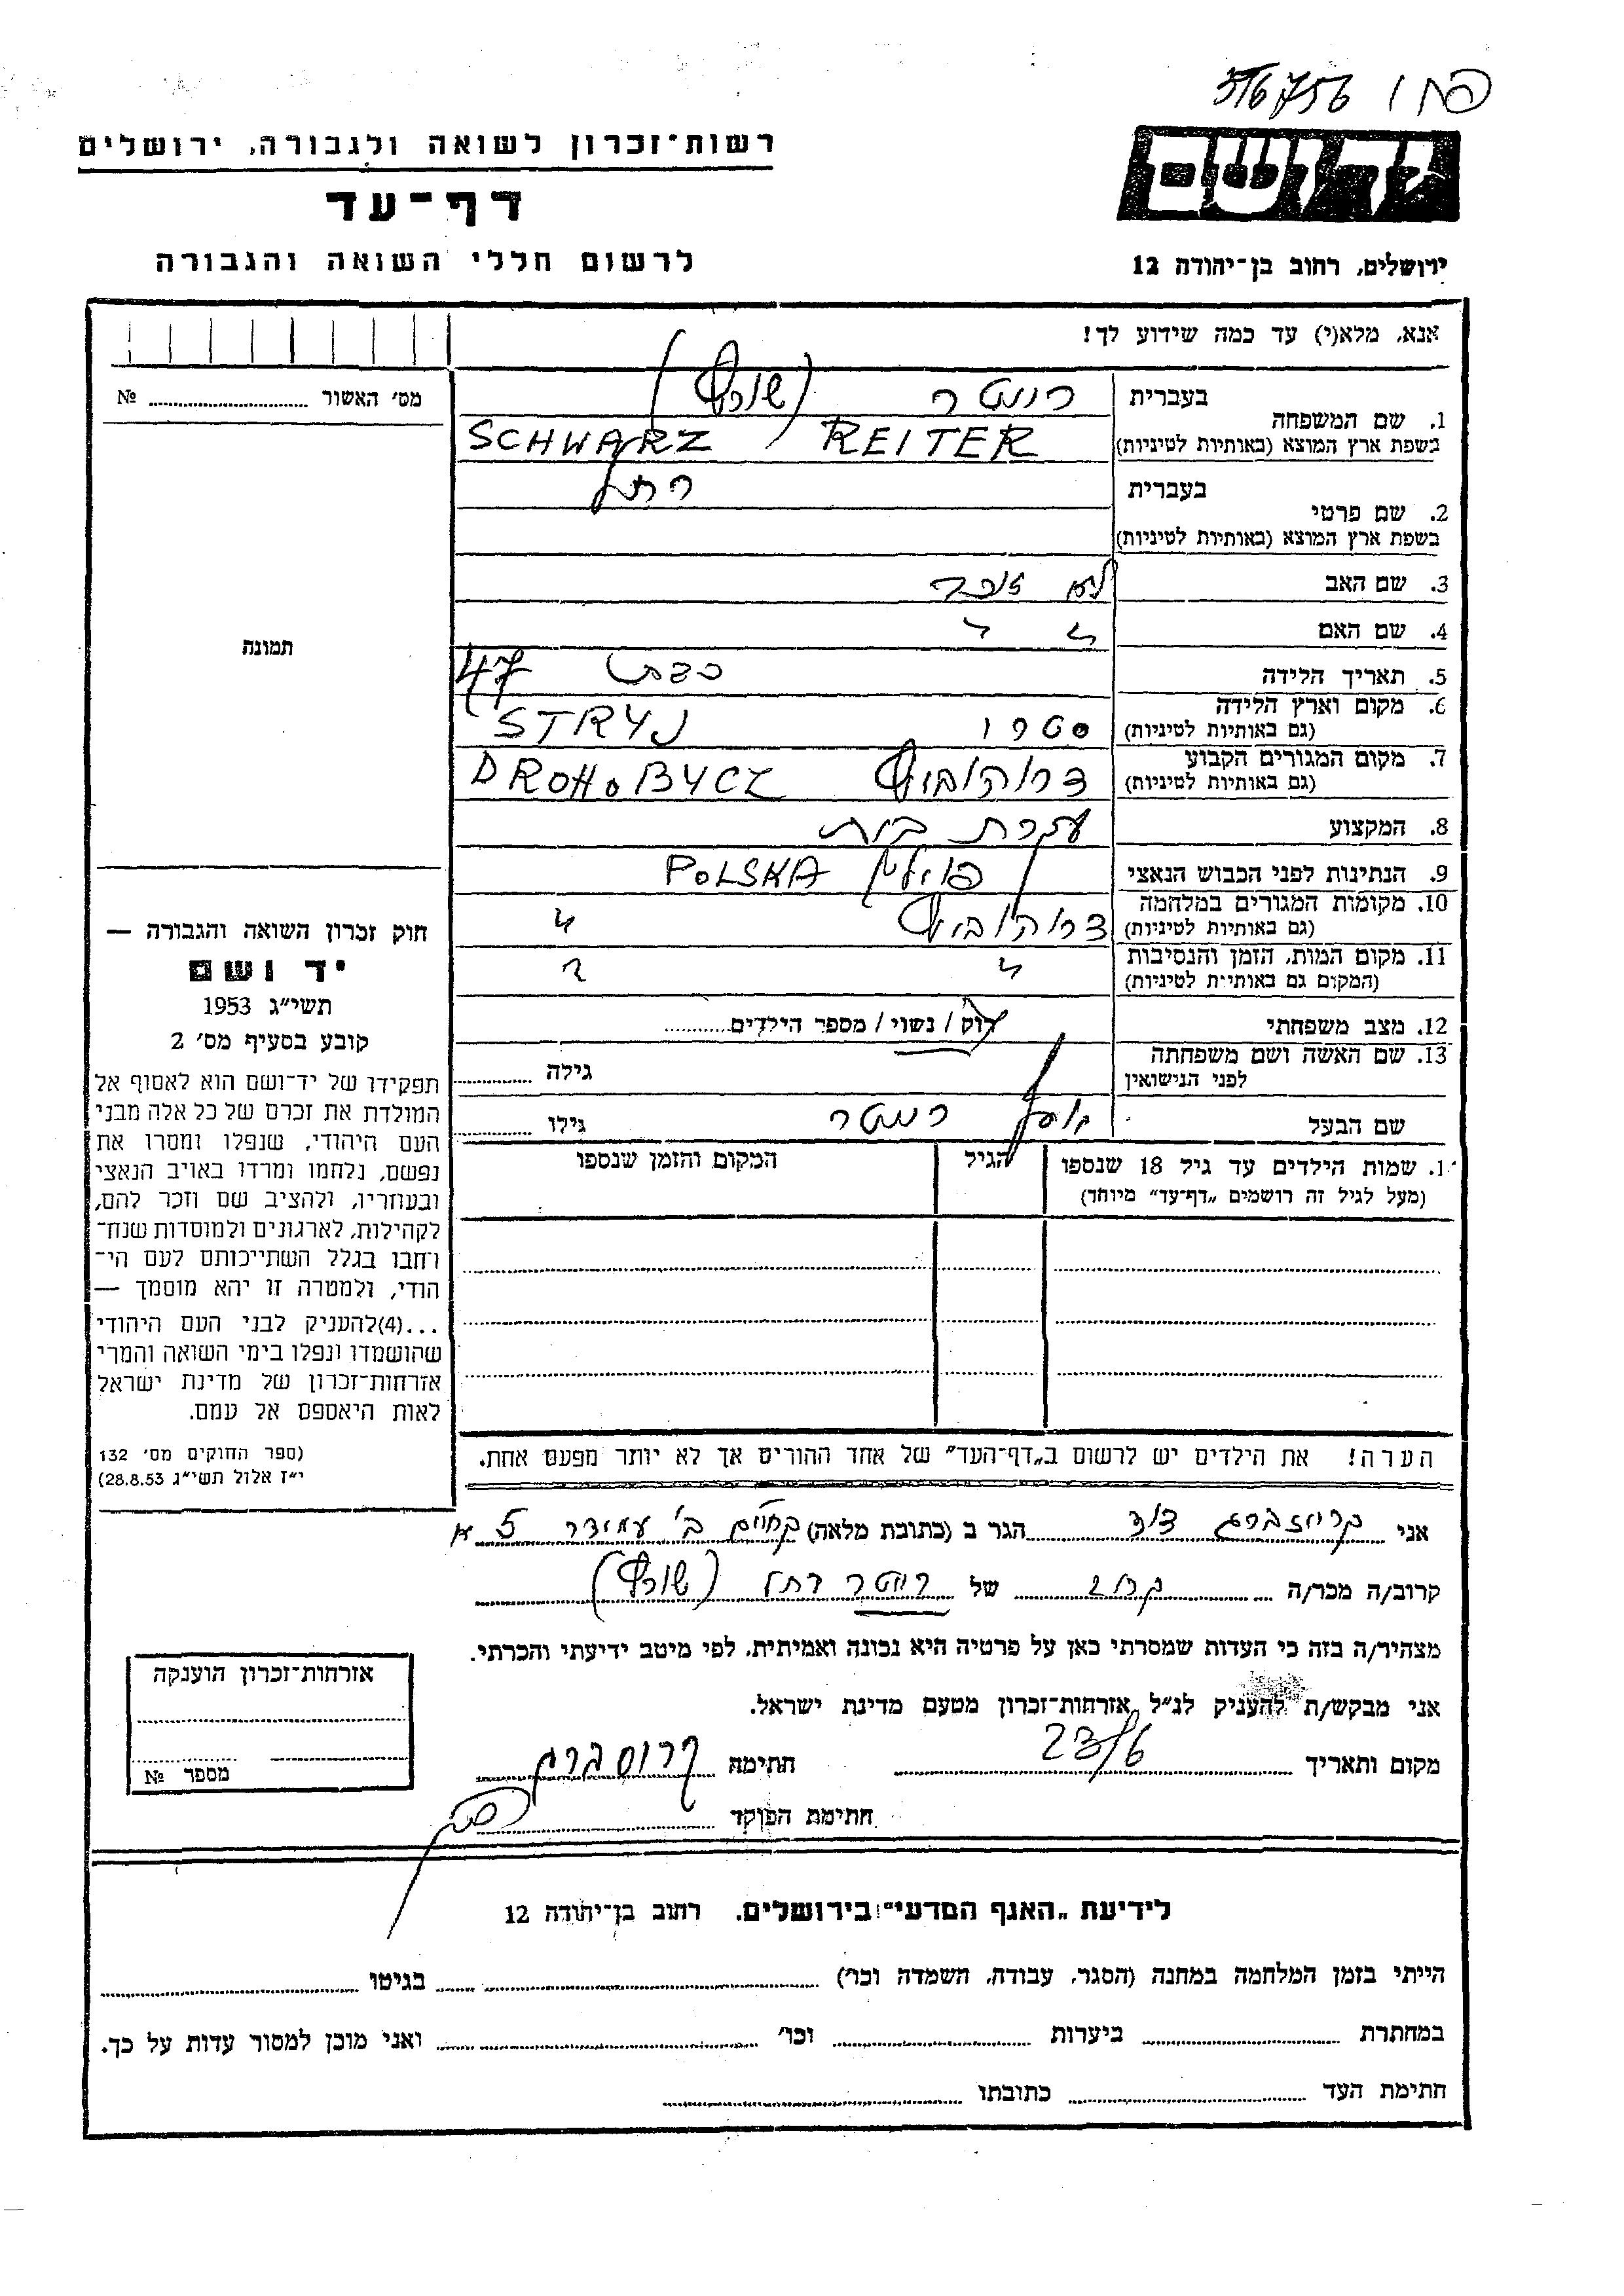 316756 / פחו
רשות־זכרון לשואה ולגבורה, ירושלים
יד ושם
דף־עד
לרשום חללי השואה והגבורה
ירושלים, רחוב בן־יהודה 12
אנא, מלא(י) עד כמה שידוע לך!
מס׳ האשור № 
1. שם המשפחה בעברית רייטר (שורץ)
בשפת ארץ המוצא (באותיות לטיניות) SCHWARZ / REITER
2. שם פרטי בעברית רחל
בשפת ארץ המוצא (באותיות לטיניות)
3. שם האב לא זוכר
4. שם האם " "
5. תאריך הלידה כבת 47
6. מקום וארץ הלידה (גם באותיות לטיניות) סטרי STRYJ
7. מקום המגורים הקבוע (גם באותיות לטיניות) דרוהוביץ DROHOBYCZ
8. המקצוע עקרת בית
9. הנתינות לפני הכבוש הנאצי פוילין POLSKA
10. מקומות המגורים במלחמה (גם באותיות לטיניות) דרוהוביץ "
11. מקום המות, הזמן והנסיבות (המקום גם באותיות לטיניות) " "
12. מצב משפחתי רוק / נשוי / מספר הילדים
13. שם האשה ושם משפחתה לפני הנישואין גילה
שם הבעל יוסף רייטר גילו
1. שמות הילדים עד גיל 18 שנספו (מעל לגיל זה רושמים „דף־עד״ מיוחד) הגיל המקום והזמן שנספו
תמונה
חוק זכרון השואה והגבורה —
יד ושם
תשי״ג 1953
קובע בסעיף מס׳ 2
תפקידו של יד־ושם הוא לאסוף אל
המולדת את זכרם של כל אלה מבני
העם היהודי, שנפלו ומסרו את
נפשם, נלחמו ומרדו באויב הנאצי
ובעוזריו, ולהציב שם וזכר להם,
לקהילות, לארגונים ולמוסדות שנח־
רחבו בגלל השתייכותם לעם הי־
הודי, ולמטרה זו יהא מוסמך —
...(4)להעניק לבני העם היהודי
שהושמדו ונפלו בימי השואה והמרי
אזרחות־זכרון של מדינת ישראל
לאות היאספם אל עמם.
(ספר החוקים מס׳ 132
י״ז אלול תשי״ג 28.8.53)
הערה! את הילדים יש לרשום ב„דף־העד״ של אחד ההורים אך לא יותר מפעם אחת.
אני קרויזברג דוד הגר ב (כתובת מלאה) ב׳ עמידר 5 א
קרוב/ה מכר/ה קרוב של רייטר רחל (שורץ)
מצהיר/ה בזה כי העדות שמסרתי כאן על פרטיה היא נכונה ואמיתית, לפי מיטב ידיעתי והכרתי.
אני מבקש/ת להעניק לנ״ל אזרחות־זכרון מטעם מדינת ישראל.
מקום ותאריך 23/6 חתימה
חתימת הפוקד
אזרחות־זכרון הוענקה
מספר №
לידיעת „האגף המדעי״ בירושלים, רחוב בן־יהודה 12
הייתי בזמן המלחמה במחנה (הסגר, עבודה, השמדה וכו׳) בגיטו
במחתרת ביערות וכו׳ ואני מוכן למסור עדות על כך.
חתימת העד כתובתו